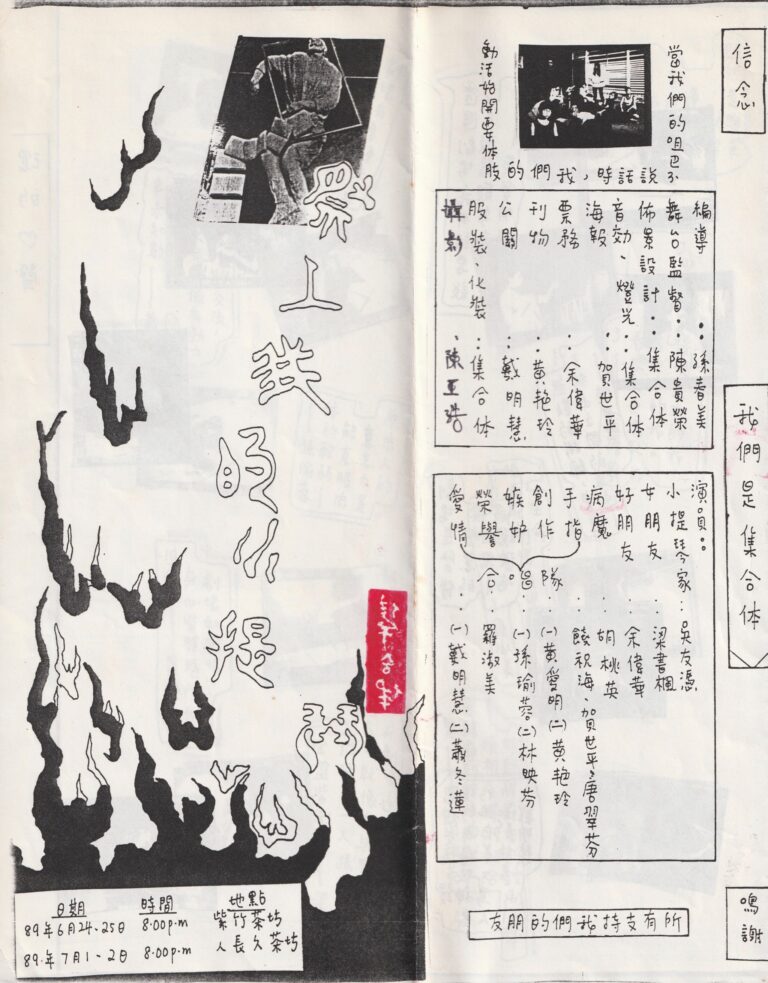 祭上我的小提琴
日期 時間 地點
89年6月24-25日 8:00p.m 紫竹茶坊
89年7月1-2日 8:00p.m 人長久茶坊
信念
當我們的咀巴不
說話時，我們的
肢体要開始活動
我們是集合体
編導：孫春美
舞台監督：陳貴榮
佈景設計：集合体
音効、燈光：集合体
海報：賀世平
票務：余偉華
刊物：黃艷玲
公關：戴明慧
服裝、化裝：集合体
攝影、陳亚浩
演員：
小提琴家：吳友憑
女朋友：梁書楓
好朋友：余偉華
病魔：胡桃英
手指：饒祝海、賀世平、唐翠芬
創作 合唱隊：(一)黃愛明(二)黃艷玲
嫉妒：(一)孫瑜蓉(二)林映芬
榮譽：羅淑美
愛情：(一)戴明慧(二)蕭冬蓮
鳴謝
所有支持我們的朋友